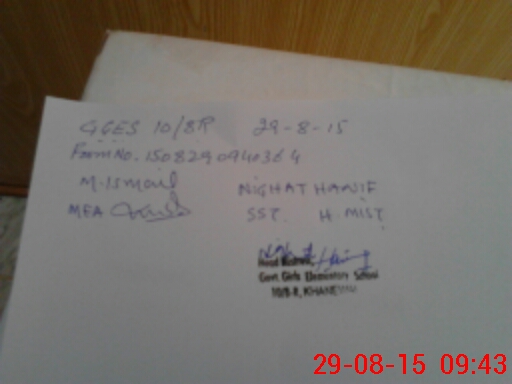 GGES 10/8R 29-8-15
Form No. 150829094036 4
M. Ismail NIGHAT HANIF
MEA
SST. H. MIST
Head Mistress,
Govt. Girls Elementary School
10/8-R, KHANEWAL
29-08-15 09:43